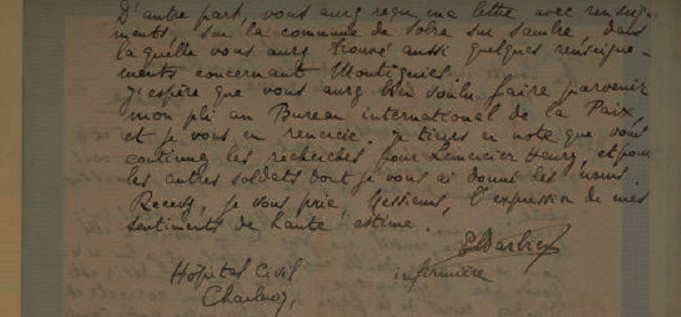 D'autre part, vous aurez reçu ma lettre avec renseig-
ments, sur la commune de Solre sur Sambre, dans
laquelle vous aurez trouvé aussi quelques renseigne-
ments concernant Montignies.
J'espère que vous aurez bien voulu faire parvenir
mon pli au Bureau international de la Paix,
et je vous en remercie. Je tiens en note que vous
continuez les recherches pour Lemercier Henry, et pour
les autres soldats dont je vous ai donné les noms.
Recevez, je vous prie, Messieurs, l'expression de mes
sentiments de haute estime.
infirmière
Hôpital Civil
Charleroy,